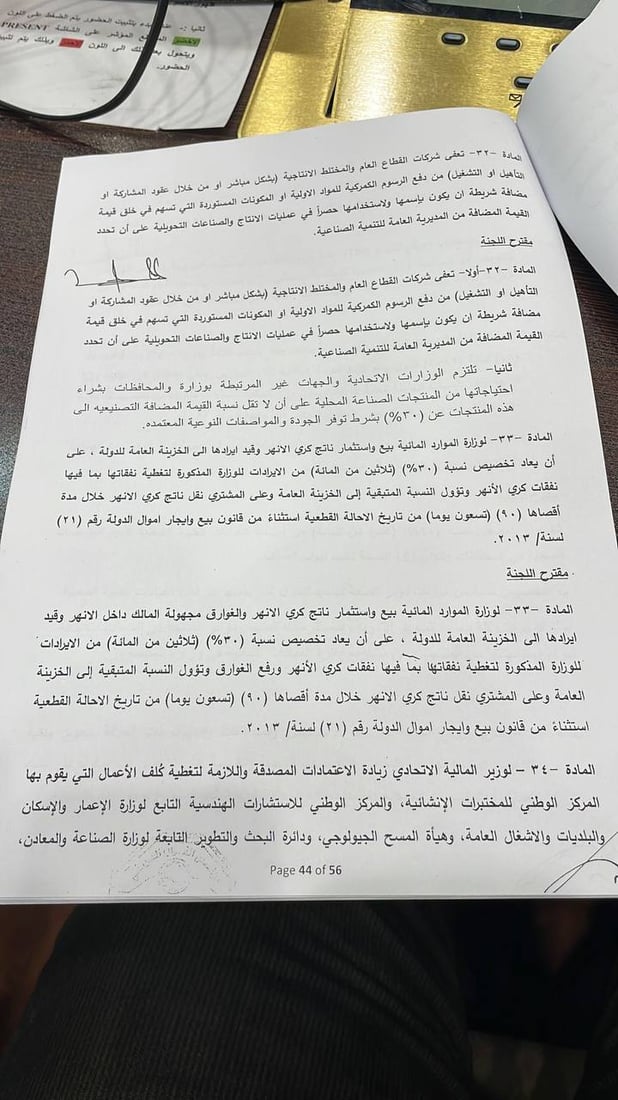 ثانيا :-
يتم الضغط على اللون
الاخضر
المؤشر على الشاشة PRESENT
ويتحول
الى اللون الاحمر وبذلك يتم
الحضور.
المادة -٣٢- تعفى شركات القطاع العام والمختلط الانتاجية (بشكل مباشر او من خلال عقود المشاركة او
التأهيل او التشغيل) من دفع الرسوم الكمركية للمواد الاولية او المكونات المستوردة التي تسهم في خلق قيمة
مضافة شريطة ان يكون بإسمها ولاستخدامها حصراً في عمليات الانتاج والصناعات التحويلية على أن تحدد
القيمة المضافة من المديرية العامة للتنمية الصناعية.
مقترح اللجنة
المادة -٣٢-أولا- تعفى شركات القطاع العام والمختلط الانتاجية (بشكل مباشر او من خلال عقود المشاركة او
التأهيل او التشغيل) من دفع الرسوم الكمركية للمواد الاولية او المكونات المستوردة التي تسهم في خلق قيمة
مضافة شريطة ان يكون بإسمها ولاستخدامها حصراً في عمليات الانتاج والصناعات التحويلية على أن تحدد
القيمة المضافة من المديرية العامة للتنمية الصناعية.
ثانيا- تلتزم الوزارات الاتحادية والجهات غير المرتبطة بوزارة والمحافظات بشراء
احتياجاتها من المنتجات الصناعة المحلية على أن لا تقل نسبة القيمة المضافة التصنيعيه الى
هذه المنتجات عن (٣٠%) بشرط توفر الجودة والمواصفات النوعية المعتمده.
المادة -٣٣- لوزارة الموارد المائية بيع واستثمار ناتج كري الانهر وقيد ايرادها الى الخزينة العامة للدولة ، على
أن يعاد تخصيص نسبة (٣٠%) (ثلاثين من المائة) من الايرادات للوزارة المذكورة لتغطية نفقاتها بما فيها
نفقات كري الأنهر وتؤول النسبة المتبقية إلى الخزينة العامة وعلى المشتري نقل ناتج كري الانهر خلال مدة
أقصاها (٩٠) (تسعون يوما) من تاريخ الاحالة القطعية استثناءً من قانون بيع وايجار اموال الدولة رقم (٢١)
لسنة/ ٢٠١٣.
مقترح اللجنة
المادة -٣٣- لوزارة الموارد المائية بيع واستثمار ناتج كري الانهر والغوارق مجهولة المالك داخل الانهر وقيد
ايرادها الى الخزينة العامة للدولة ، على أن يعاد تخصيص نسبة (٣٠%) (ثلاثين من المائة) من الايرادات
للوزارة المذكورة لتغطية نفقاتها بما فيها نفقات كري الأنهر ورفع الغوارق وتؤول النسبة المتبقية إلى الخزينة
العامة وعلى المشتري نقل ناتج كري الانهر خلال مدة أقصاها (٩٠) (تسعون يوما) من تاريخ الاحالة القطعية
استثناءً من قانون بيع وايجار اموال الدولة رقم (٢١) لسنة/ ٢٠١٣.
المادة -٣٤ - لوزير المالية الاتحادي زيادة الاعتمادات المصدقة واللازمة لتغطية كُلف الأعمال التي يقوم بها
المركز الوطني للمختبرات الإنشائية، والمركز الوطني للاستشارات الهندسية التابع لوزارة الإعمار والإسكان
والبلديات والاشغال العامة، وهيأة المسح الجيولوجي، ودائرة البحث والتطوير التابعة لوزارة الصناعة والمعادن،
Page 44 of 56